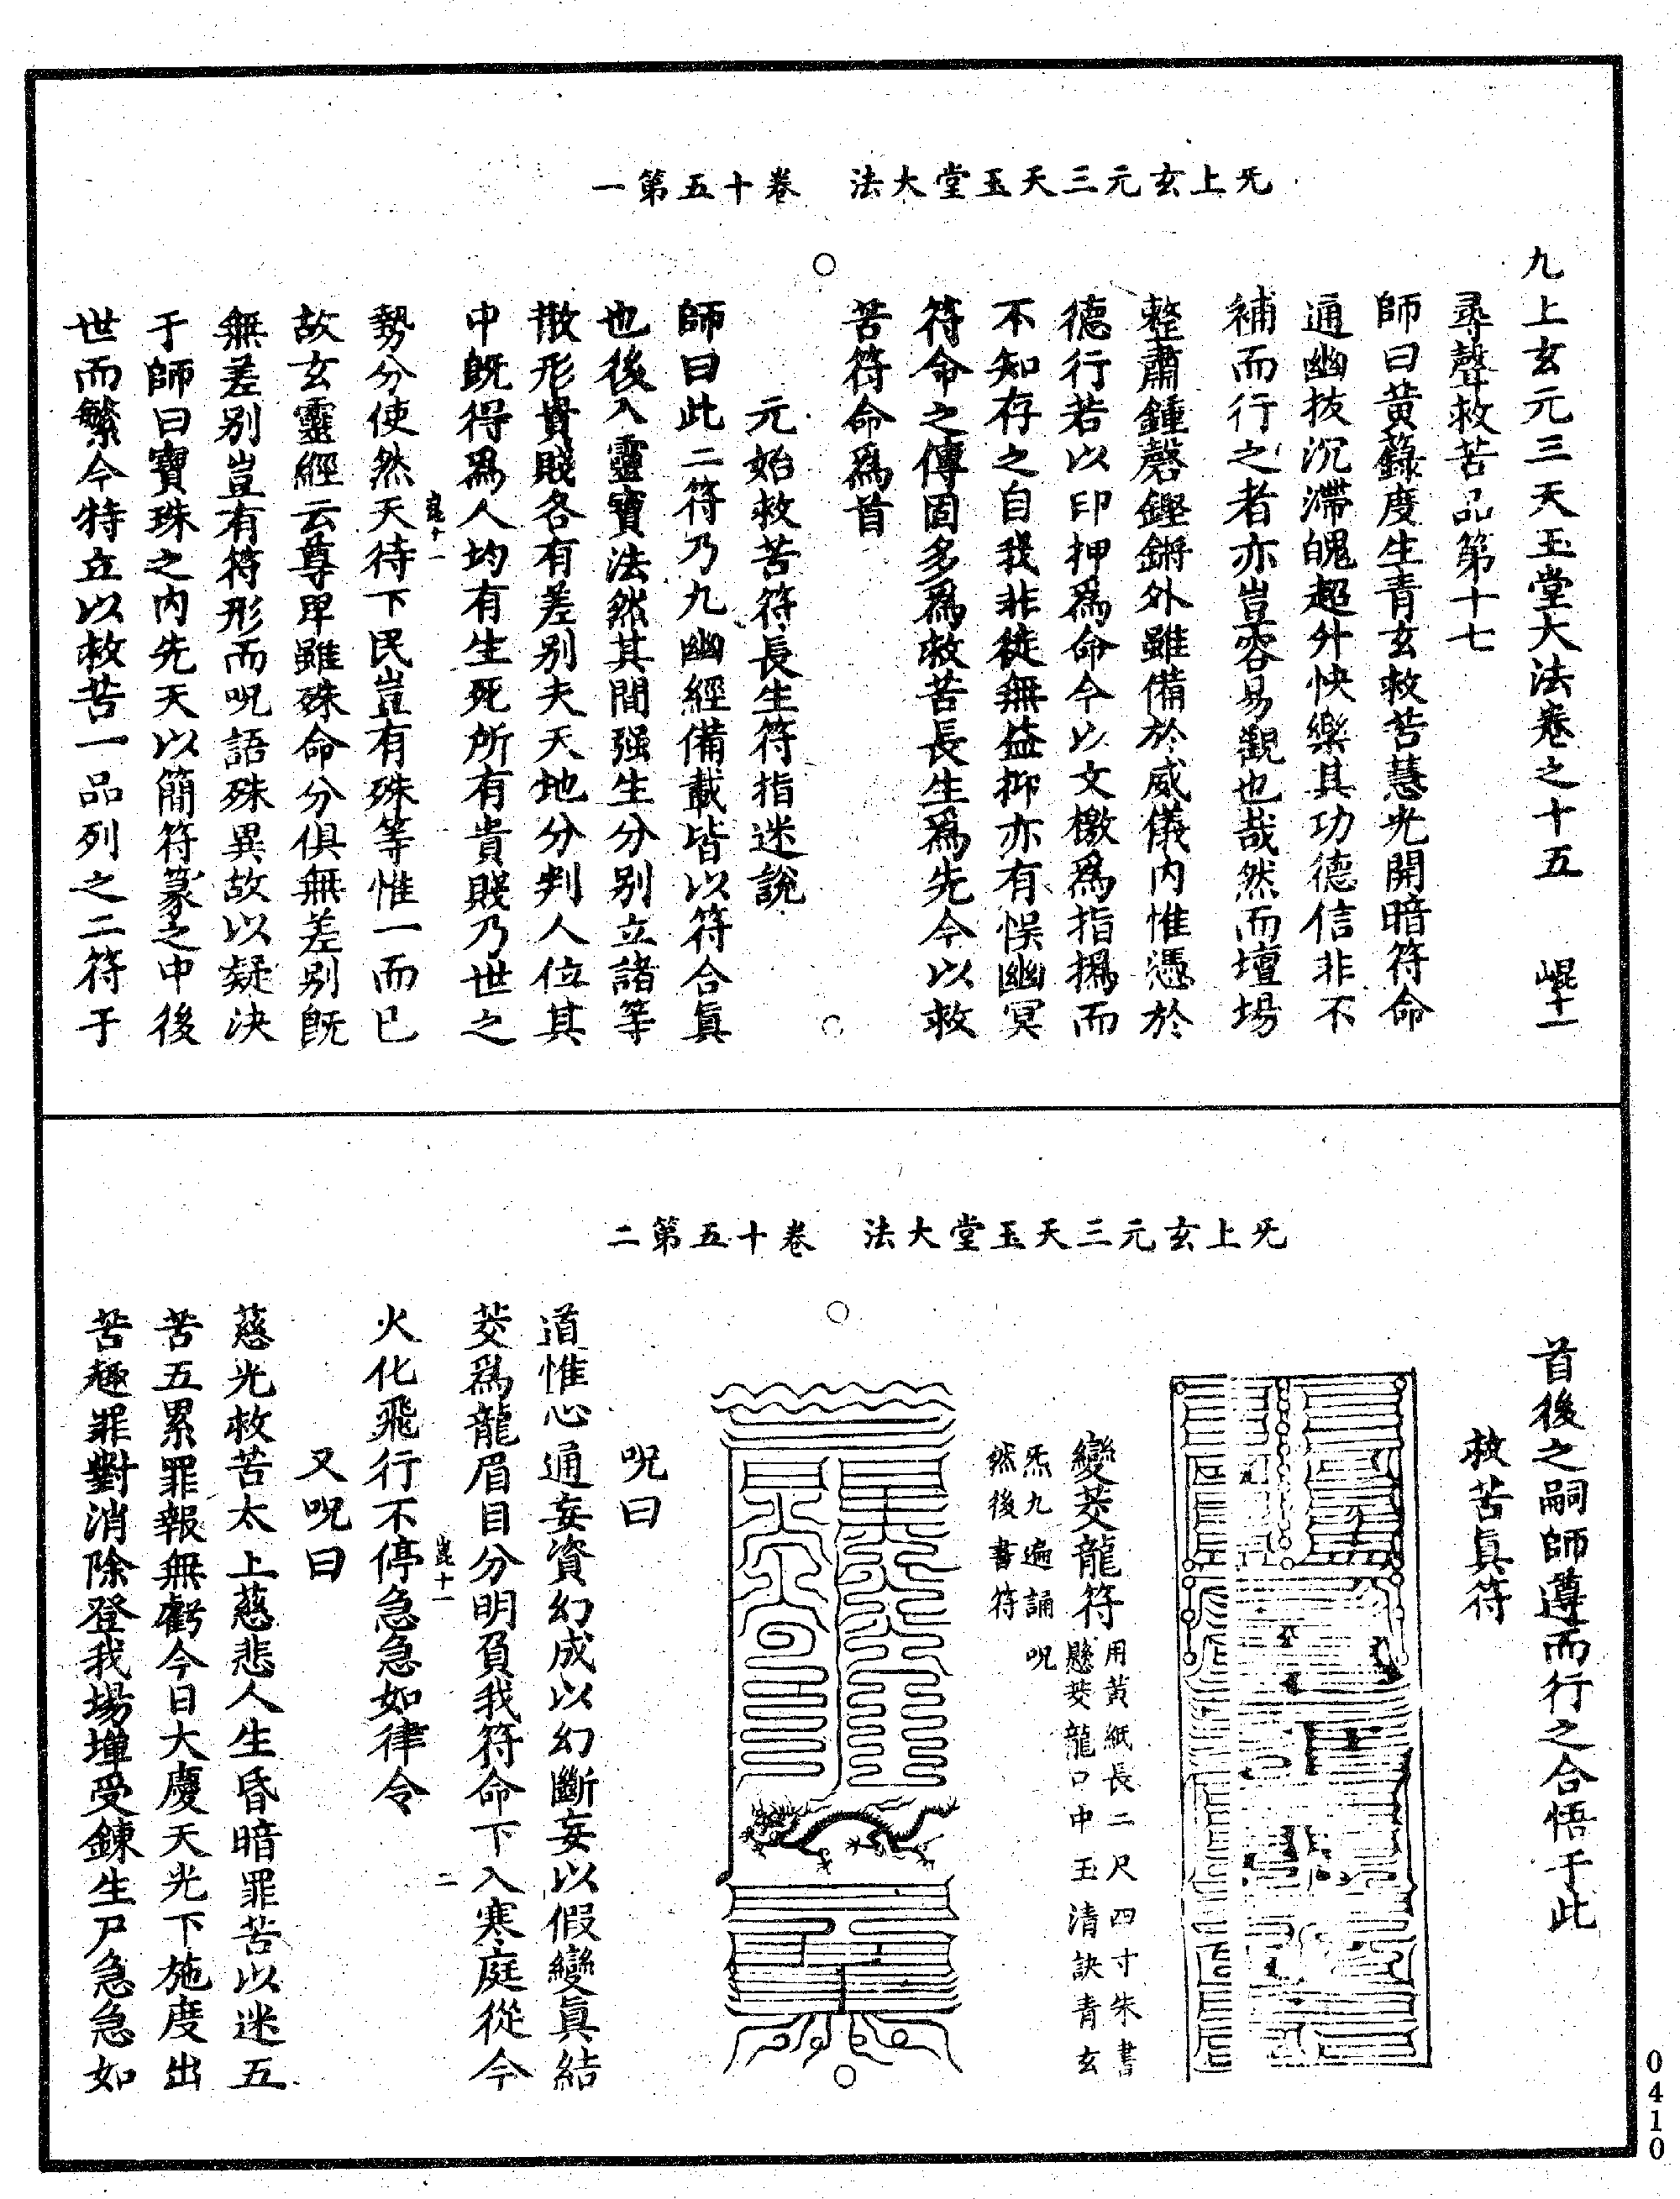 旡上玄元三天玉堂大法　卷十五第一
九上玄元三天玉堂大法卷之十五　崐十一
尋聲救苦品第十七
師曰黃籙度生青玄救苦慧光開暗符命
通幽拔沉滯魄超升快樂其功德信非不
補而行之者亦豈容易觀也哉然而壇場
整肅鍾磬鏗鏘外雖備於威儀內惟憑於
德行若以印押爲命今以文檄爲指撝而
不知存之自我非徒無益抑亦有悮幽冥
符命之傳固多爲救苦長生爲先今以救
苦符命爲首
元始救苦符長生符指迷說
師曰此二符乃九幽經備載皆以符合眞
也後入靈寶法然其間强生分别立諸等
散形貴賤各有差别夫天地分判人位其
中旣得爲人均有生死所有貴賤乃世之
勢分使然天待下民豈有殊等惟一而已
崑十一
故玄靈經云尊卑雖殊命分俱無差别旣
無差别豈有符形而呪語殊異故以疑決
于師曰寶珠之內先天以簡符篆之中後
世而繁今特立以救苦一品列之二符于
旡上玄元三天玉堂大法　卷十五第二
首後之嗣師遵而行之合悟于此
救苦眞符
變茭龍符　用黃紙長二尺四寸朱書
懸茭龍口中玉清訣青玄
炁九遍誦呪
然後書符
呪曰
道惟心通妄資幻成以幻斷妄以假變眞結
茭爲龍眉目分明負我符命下入寒庭從今
火化飛行不停急急如律令
崑十一　二
又呪曰
慈光救苦太上慈悲人生昏暗罪苦以迷五
苦五累罪報無虧今日大慶天光下施度出
苦趣罪對消除登我場墠受鍊生尸急急如
0410